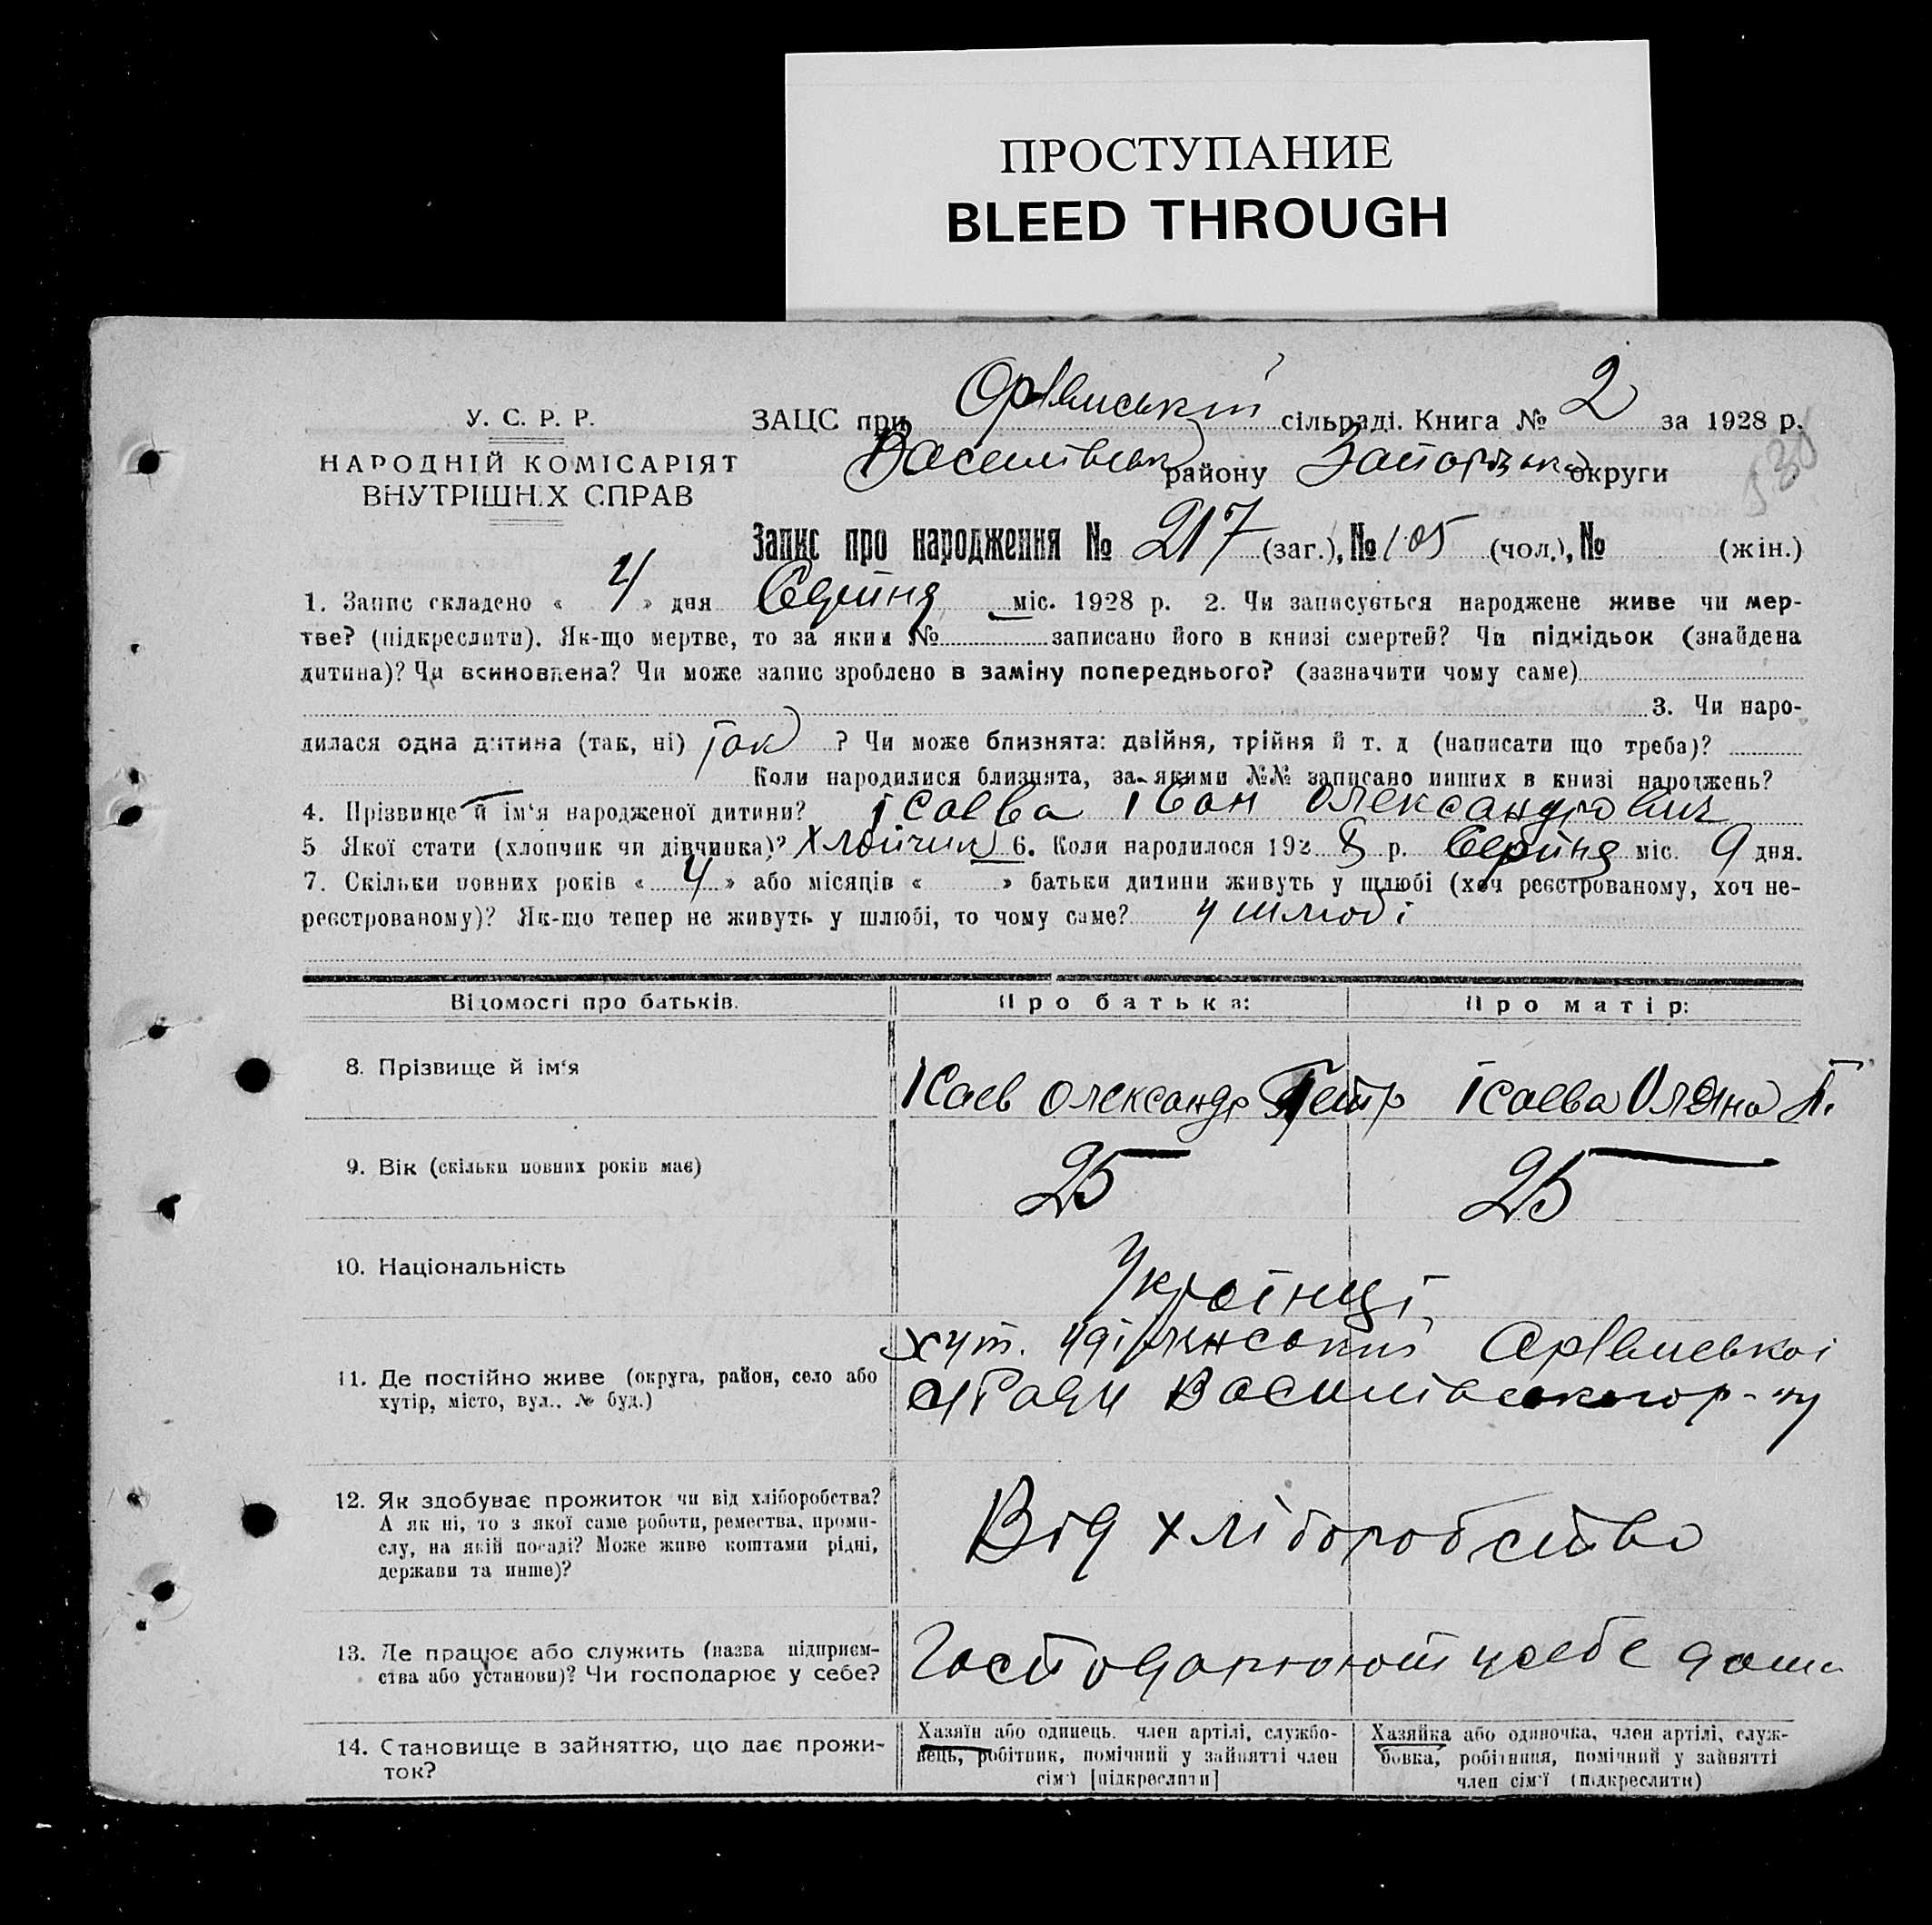 ПРОСТУПАНИЕ
BLEED THROUGH
У. С. Р. Р.
НАРОДНІЙ КОМІСАРІЯТ
ВНУТРІШНІХ СПРАВ
ЗАЦС при сільраді. Книга № 2 за 1928 р.
Василівськ району Запорізька округи
Запис про народження № 217 (заг.), № 105 (чол.), № (жін.)
1. Запис складено « » дня Серпня міс. 1928 р. 2. Чи записується народжене живе чи мер-
тве? (підкреслити). Як-що мертве, то за яким № записано його в книзі смертей? Чи підкідьок (знайдена
дитина)? Чи всиновлена? Чи може запис зроблено в заміну попереднього? (зазначити чому саме)
3. Чи наро-
дилася одна дитина (так, ні) так ? Чи може близнята: двійня, трійня й т. д (написати що треба)?
Коли народилися близнята, за якими №№ записано инших в книзі народжень?
4. Прізвище й ім‘я народженої дитини? Ісаева Іван Олександрович
5 Якої стати (хлопчик чи дівчинка)? Хлопчик 6. Коли народилося 1928 р. Серпня міс. 9 дня.
7. Скільки повних років « 4 » або місяців « » батьки дитини живуть у шлюбі (хоч реєстрованому, хоч не-
реєстрованому)? Як-що тепер не живуть у шлюбі, то чому саме? у шлюбі
Відомості про батьків. Про батька: Про матір:
8. Прізвище й ім‘я Ісаев Олександр Петр Ісаева Оляна П.
9. Вік (скільки повних років має) 25 25
10. Національність Українці
11. Де постійно живе (округа, район, село або
хутір, місто, вул., № буд.)
хут.
с/Ради Василівського р-ну
12. Як здобуває прожиток чи від хліборобства?
А як ні, то з якої саме роботи, ремества, проми-
слу, на якій посаді? Може живе коштами рідні,
держави та инше)?
Від хліборобства
13. Де працює або служить (назва підприєм-
ства або установи)? Чи господарює у себе?
Господарюють у себе дома
14. Становище в зайняттю, що дає прожи-
ток?
Хазяїн або одинець, член артілі, службо-
вець, робітник, помічний у зайнятті член
сім‘ї [підкреслити]
Хазяйка або одиночка, член артілі, служ-
бовка, робітниця, помічний у зайнятті
член сім‘ї (підкреслити)